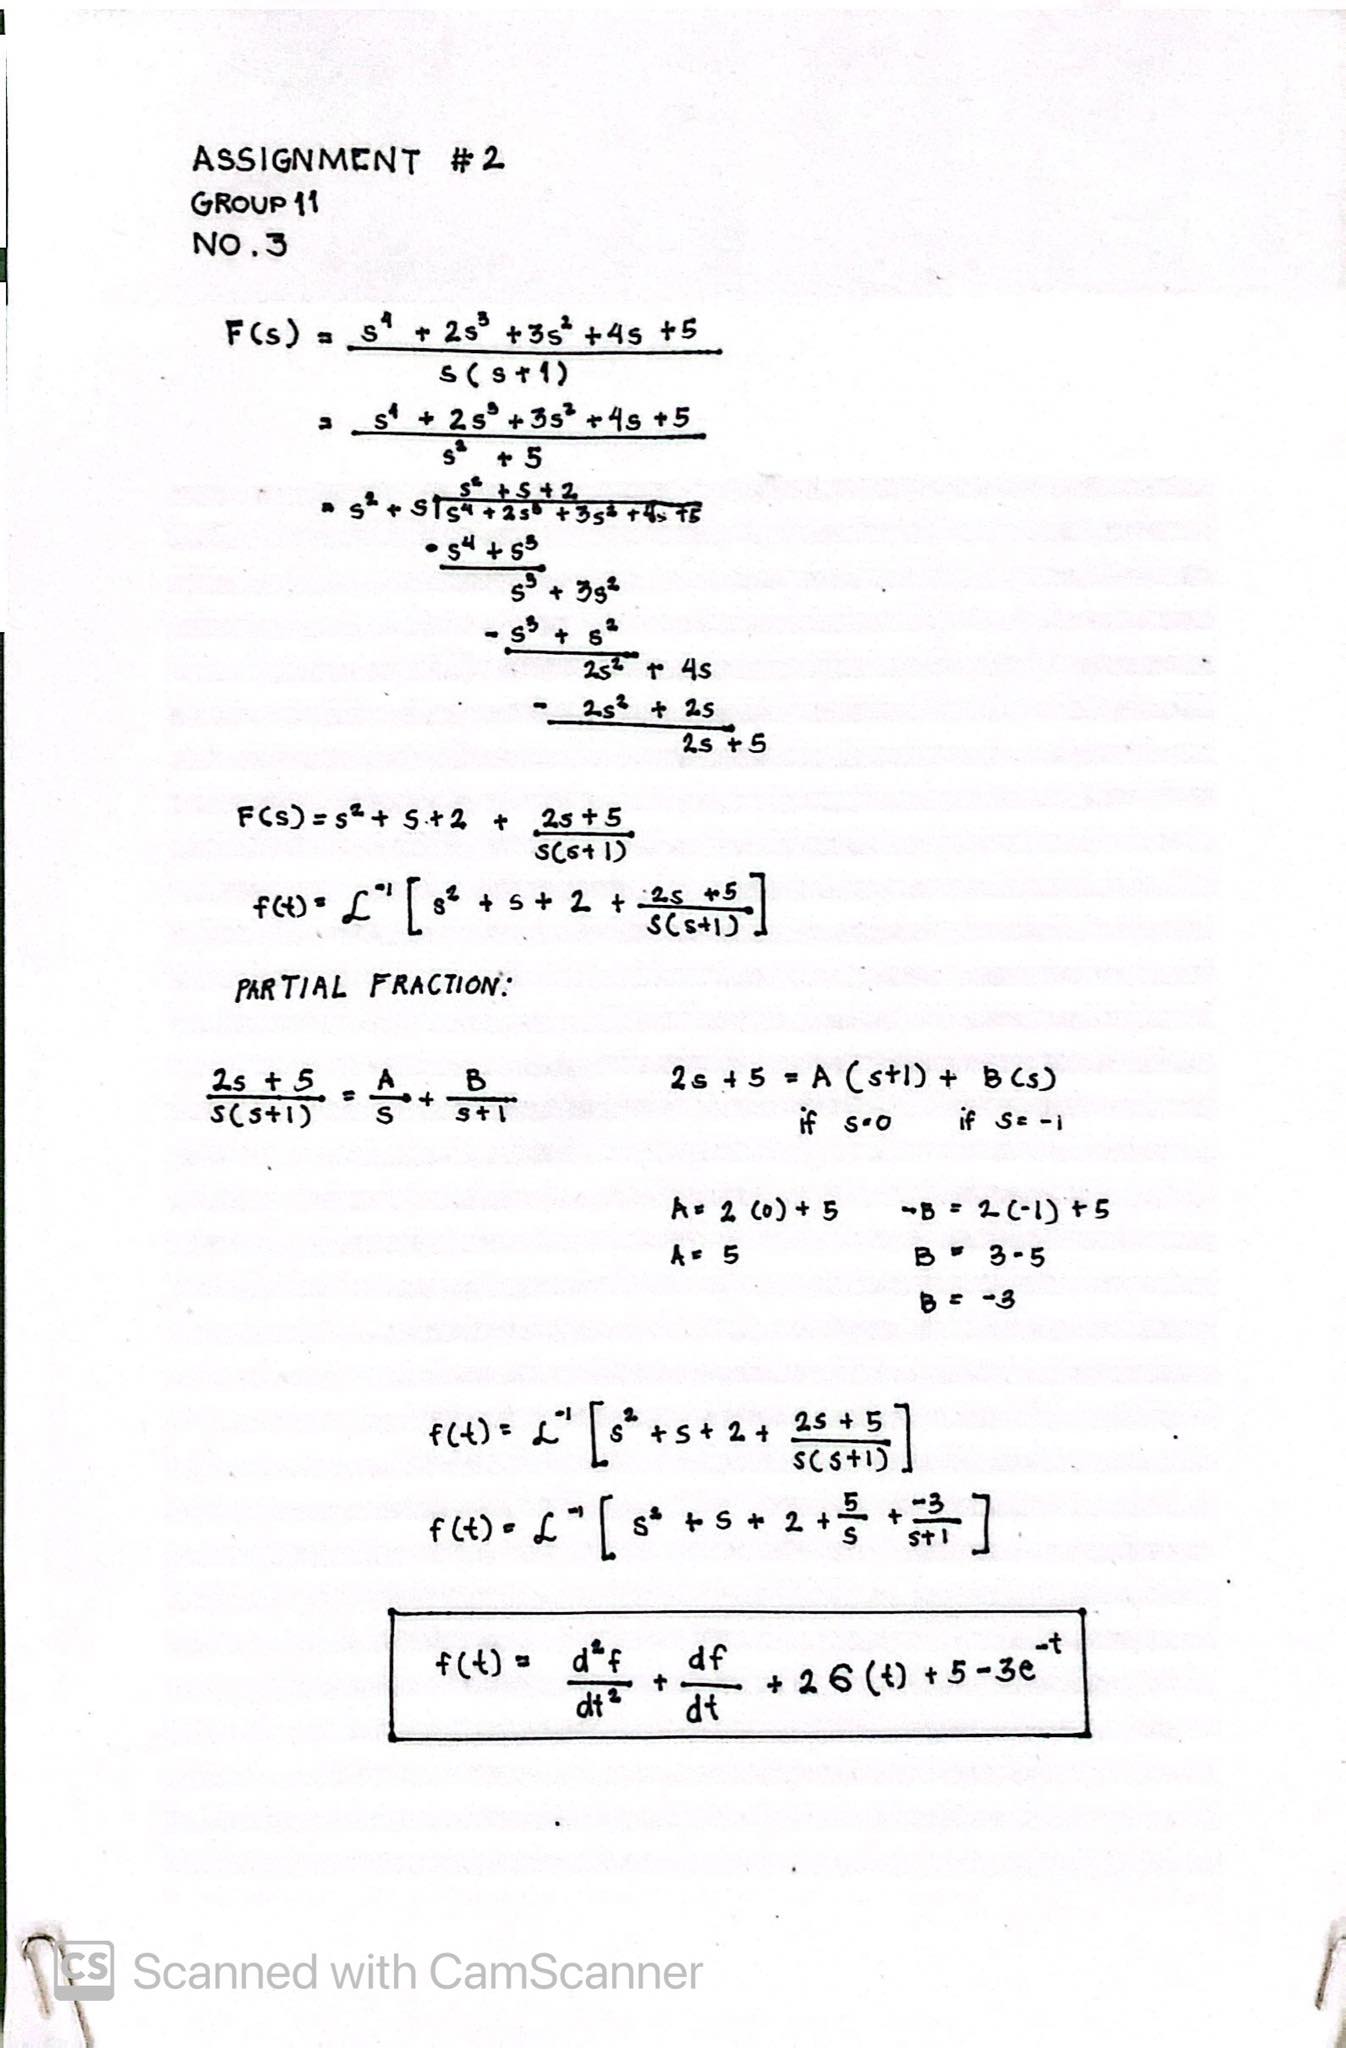 ASSIGNMENT #2
GROUP 11
NO. 3
F(s) = s⁴ + 2s³ + 3s² + 4s + 5
s(s+1)
= s⁴ + 2s³ + 3s² + 4s + 5
s² + 5
s² + s + 2
= s² + s | s⁴ + 2s³ + 3s² + 4s + 5
- s⁴ + s³
s³ + 3s²
- s³ + s²
2s² + 4s
- 2s² + 2s
2s + 5
F(s) = s² + s + 2 + 2s + 5
s(s+1)
f(t) = ℒ⁻¹ [ s² + s + 2 + 2s + 5 ]
s(s+1)
PARTIAL FRACTION:
2s + 5 = A + B
s(s+1) s s+1
2s + 5 = A (s+1) + B(s)
if s=0 if s= -1
A = 2 (0) + 5 -B = 2 (-1) + 5
A = 5 B = 3-5
B = -3
f(t) = ℒ⁻¹ [ s² + s + 2 + 2s + 5 ]
s(s+1)
f(t) = ℒ⁻¹ [ s² + s + 2 + 5 + -3 ]
s s+1
f(t) = d²f + df + 2 б(t) + 5 - 3e⁻ᵗ
dt² dt
CS Scanned with CamScanner